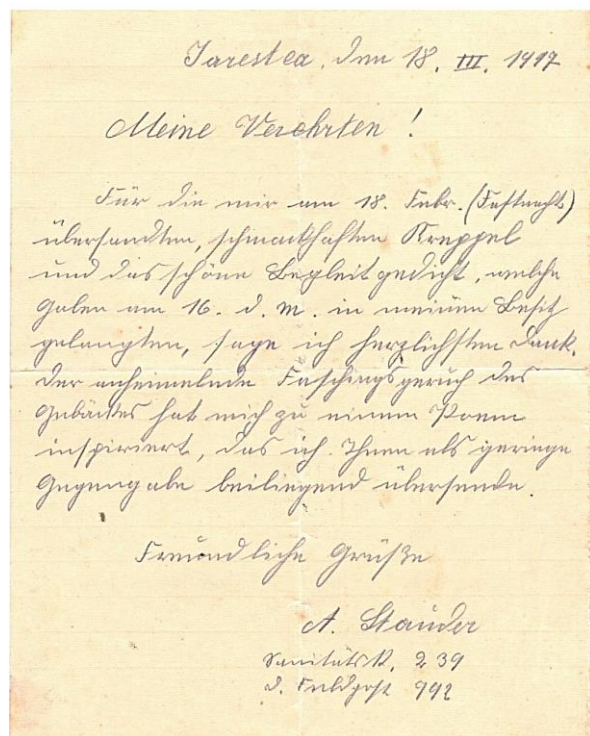 Jarestea, den 18. III. 1917
Meine Verehrten!
Für die mir am 18. Febr. (Fastnacht)
übersandten, schmackhaften Kreppel
und das schöne Begleitgedicht, welche
Gaben am 16. d. M. in meinen Besitz
gelangten, sage ich herzlichsten Dank.
Der anheimelnde Faschingsgeruch des
Gebäckes hat mich zu einem Poem
inspiriert, das ich Ihnen als geringe
Gegengabe beiliegend übersende.
Freundliche Grüße
A. Stauder
Sanitätsk. 239
d. Feldpost 992